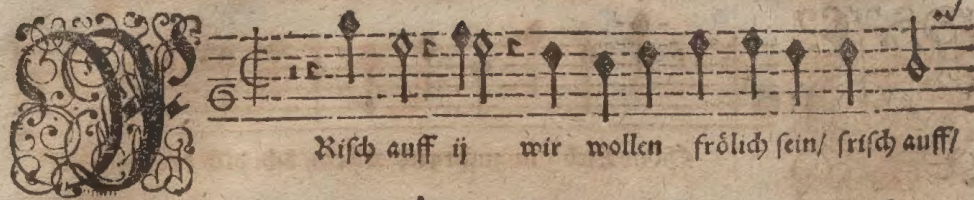 FRisch auff ij wir wollen frölich sein/ frisch auff/